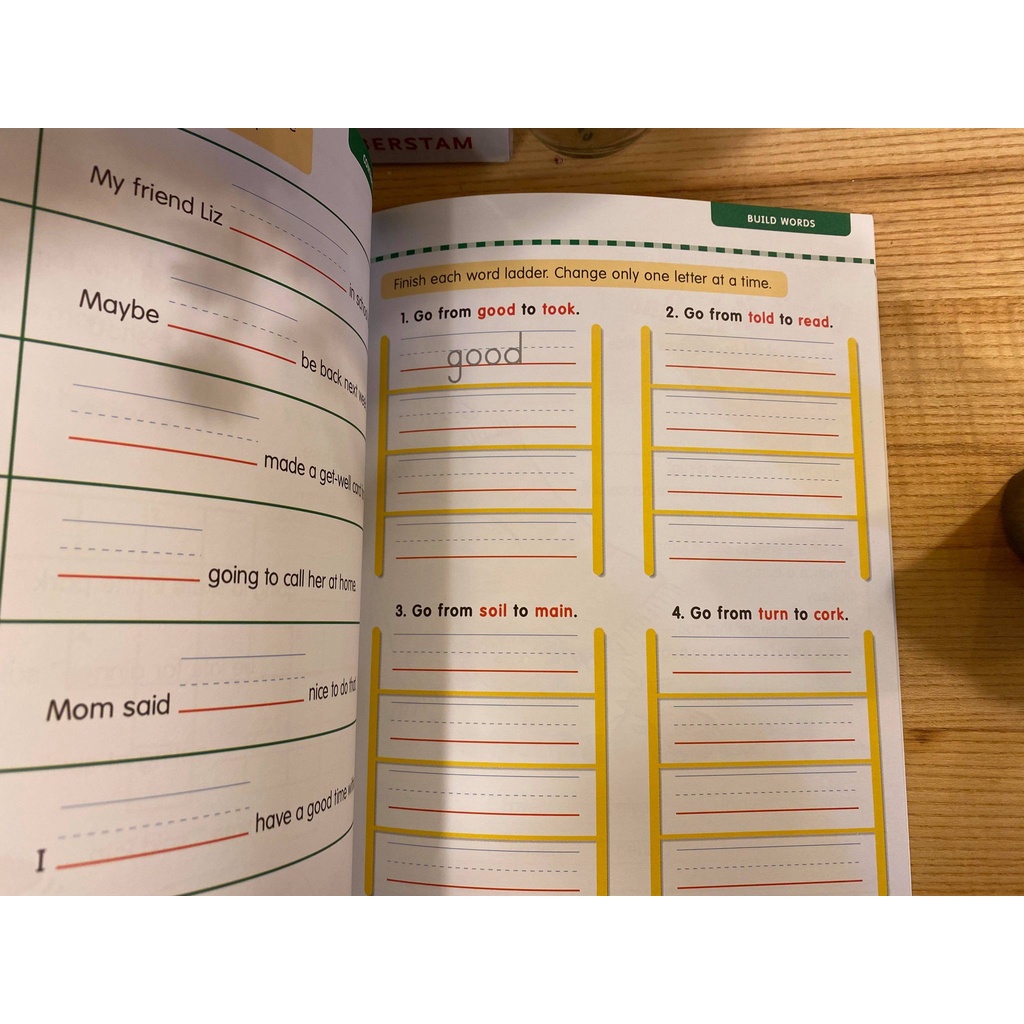 ERSTAM
My friend Liz
in school
Maybe
be back next
made a get-well card
going to call her at home
Mom said
nice to do that
I
have a good time
BUILD WORDS
Finish each word ladder. Change only one letter at a time.
1. Go from good to took.
good
2. Go from told to read.
3. Go from soil to main.
4. Go from turn to cork.